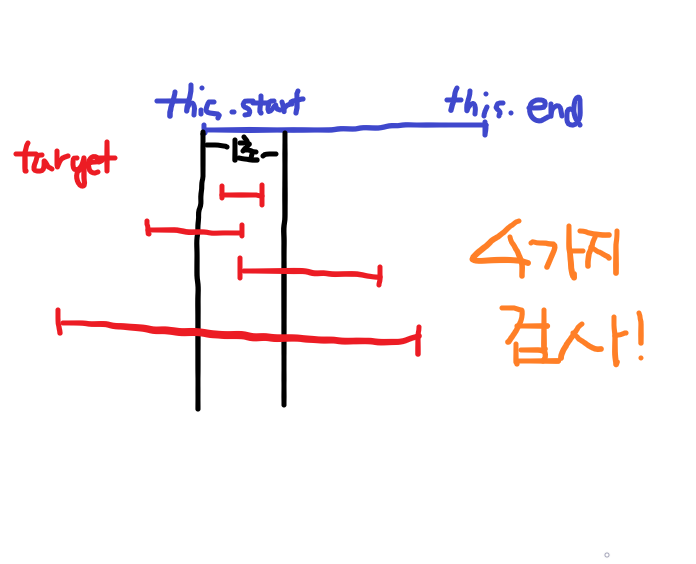 this.start
this.end
1초
target
4가지
검사!